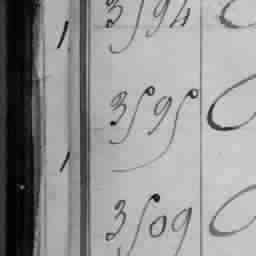 3594
1
3595
1
3509